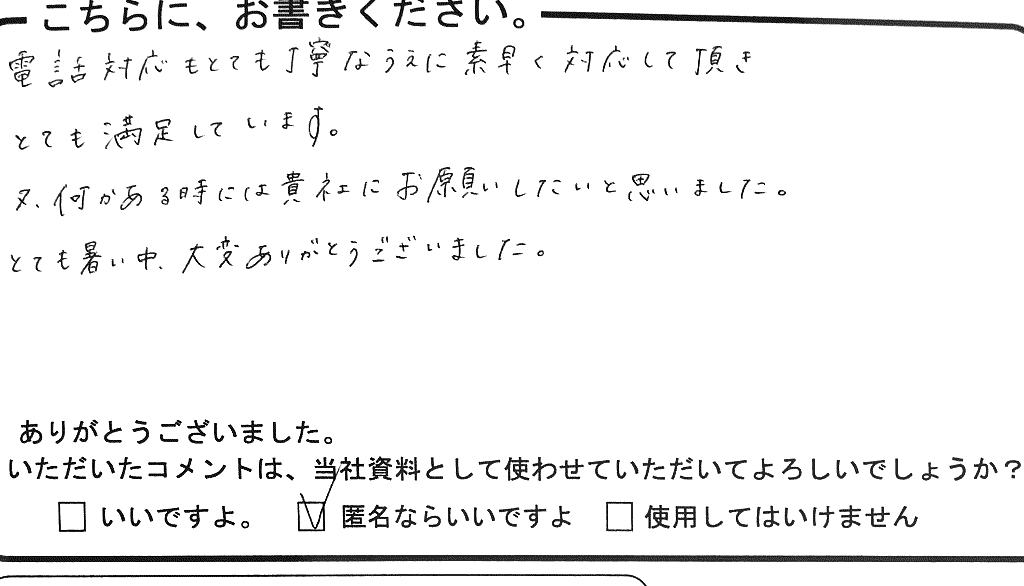 こちらに、お書きください。
電話対応もとても丁寧なうえに素早く対応して頂き
とても満足しています。
又、何かある時には貴社にお願いしたいと思いました。
とても暑い中、大変ありがとうございました。
ありがとうございました。
いただいたコメントは、当社資料として使わせていただいてよろしいでしょうか？
いいですよ。 匿名ならいいですよ 使用してはいけません